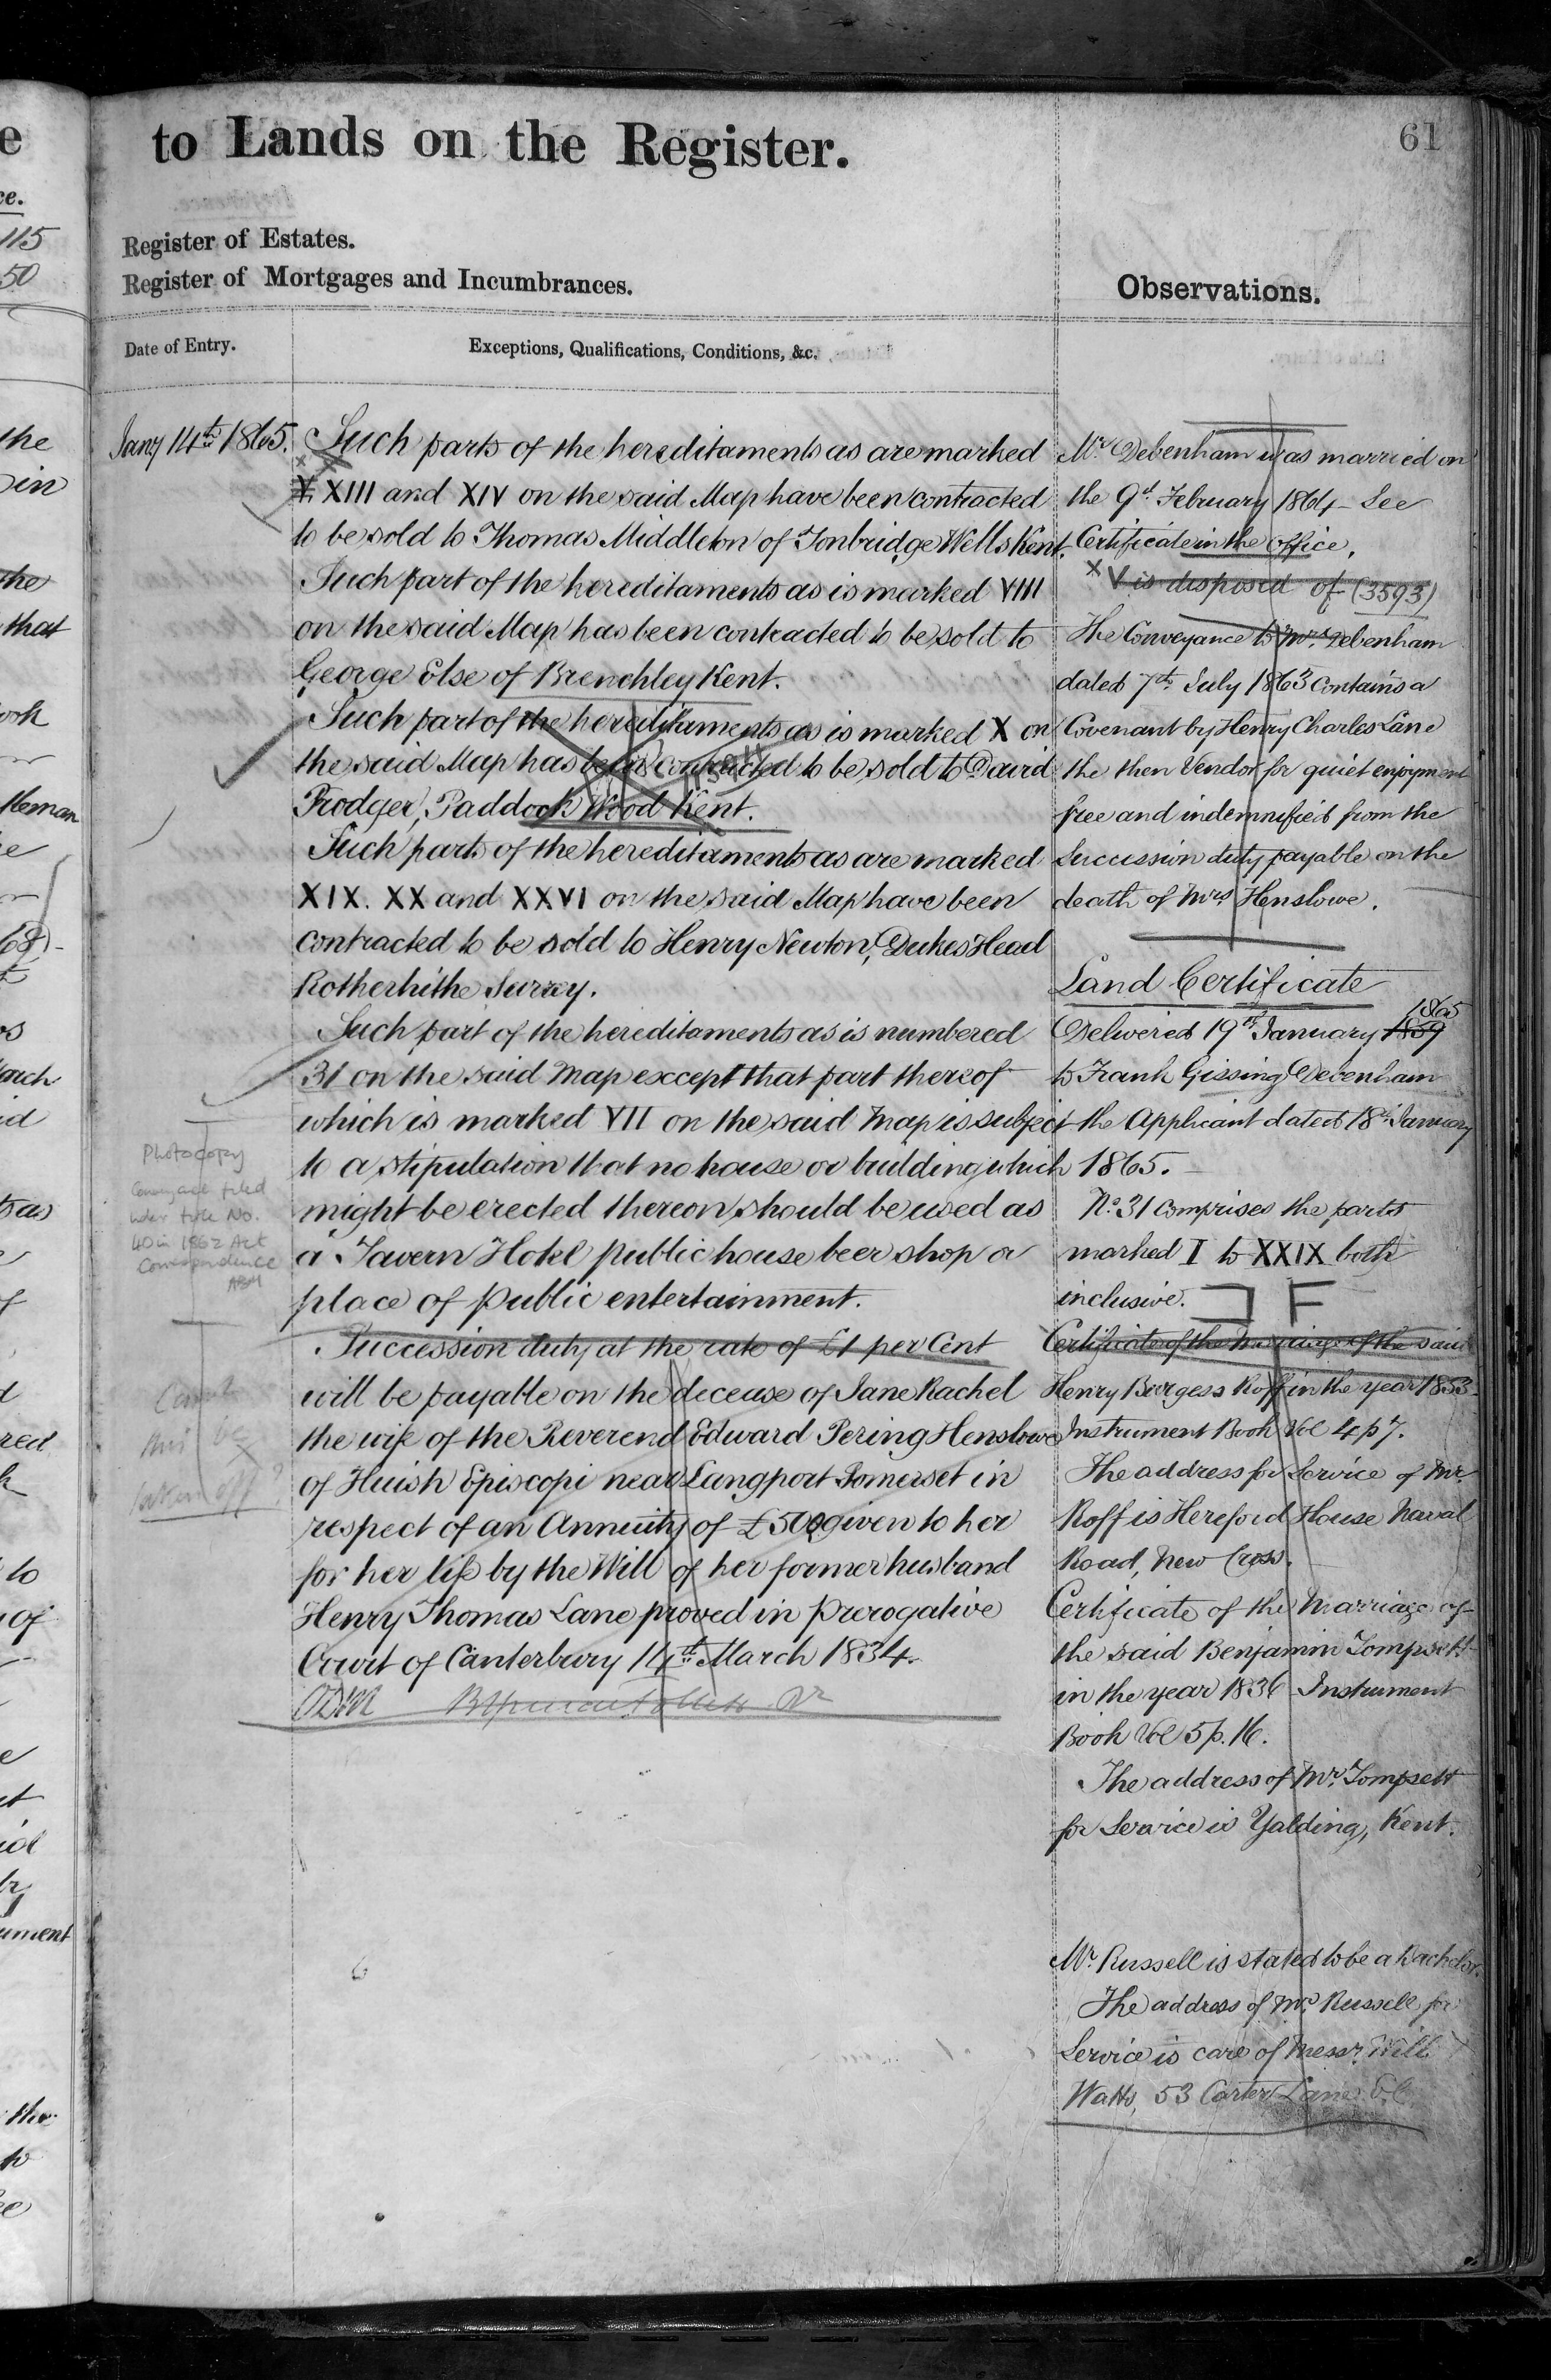 to Lands on the Register.
61
Register of Estates.
Register of Mortgages and Incumbrances.
Observations.
Date of Entry.
Exceptions, Qualifications, Conditions, &c.
Jany 14th 1865.
Such parts of the hereditaments as are marked
X XIII and XIV on the said Map have been contracted
to be sold to Thomas Middleton of Tonbridge Wells Kent.
Such part of the hereditaments as is marked VIII
on the said Map has been contracted to be sold to
George Else of Brenchley Kent.
Such part of the hereditaments as is marked X on
the said Map has been contracted to be sold to David
Frodger, Paddock Wood Kent.
Such parts of the hereditaments as are marked
XIX. XX and XXVI on the said Map have been
contracted to be sold to Henry Newton, Dukes Head
Rotherhithe Surrey.
Such part of the hereditaments as is numbered
31 on the said Map except that part thereof
which is marked VII on the said Map is subject
to a stipulation that no house or building which
might be erected thereon should be used as
a Tavern Hotel public house beer shop or
place of public entertainment.
Succession duty at the rate of £1 per Cent
will be payable on the decease of Jane Rachel
the wife of the Reverend Edward Pering Henslowe
of Huish Episcopi near Langport Somerset in
respect of an Annuity of £500 given to her
for her life by the Will of her former husband
Henry Thomas Lane proved in Prerogative
Court of Canterbury 14th March 1834.
Photocopy
Conveyance filed
under title No.
40 in 1862 Act
Correspondence
ABH
this be
taken off?
Mr. Debenham was married on
the 9th February 1864 - See
Certificate in the office.
x V is disposed of (3593)
The Conveyance to Mr. Debenham
dated 7th July 1863 contains a
Covenant by Henry Charles Lane
the then Vendor for quiet enjoyment
free and indemnified from the
Succession duty payable on the
death of Mrs Henslowe.
Land Certificate
1865
Delivered 19th January 1859
to Frank Gissing Debenham
the Applicant dated 18th January
1865.
No. 31 comprises the parts
marked I to XXIX both
inclusive. F
Certificate of the Marriage of the said
Henry Burgess Roff in the year 1853
Instrument Book Vol 4 p 7.
The address for Service of Mr.
Roff is Hereford House Naval
Road, New Cross.
Certificate of the Marriage of
the said Benjamin Tompsett
in the year 1836 Instrument
Book Vol 5 p. 16.
The address of Mr. Tompsett
for Service is Yalding, Kent.
Mr. Russell is stated to be a Bachelor.
The address of Mr. Russell for
Service is care of Messrs. Will
Watts, 53 Carter Lane E.C.